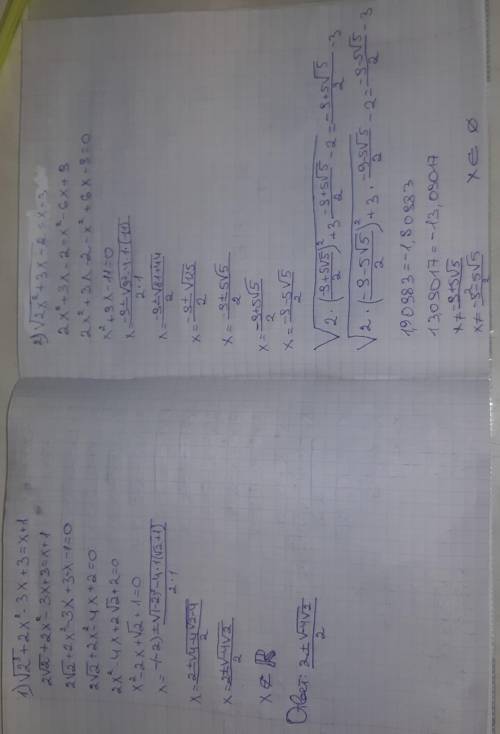 1) √2² + 2x² - 3x + 3 = x + 1
2√2 + 2x² - 3x + 3 = x + 1
2√2 + 2x² - 3x + 3 - x - 1 = 0
2√2 + 2x² - 4x + 2 = 0
2x² - 4x + 2√2 + 2 = 0
x² - 2x + √2 + 1 = 0
x = -(-2) ± √(-2)² - 4·1(√2+1) / 2·1
x = 2 ± √4 - 4√2 - 4 / 2
x = 2 ± √-4√2 / 2
x ∉ ℝ
Ответ: 2 ± √-4√2 / 2
2) √2x² + 3x - 2 = x - 3
2x² + 3x - 2 = x² - 6x + 9
2x² + 3x - 2 - x² + 6x - 9 = 0
x² + 9x - 11 = 0
x = -9 ± √9² - 4·1·(-11) / 2·1
x = -9 ± √81+44 / 2
x = -9 ± √125 / 2
x = -9 ± 5√5 / 2
x = -9+5√5 / 2
x = -9-5√5 / 2
√2·(-9+5√5 / 2)² + 3·-9+5√5 / 2 - 2 = -9+5√5 / 2 - 3
√2·(-9-5√5 / 2)² + 3·-9-5√5 / 2 - 2 = -9-5√5 / 2 - 3
1,90983 = -1,90983
13,09017 = -13,09017
x ≠ -9+5√5 / 2
x ≠ -9-5√5 / 2
x ∈ ∅